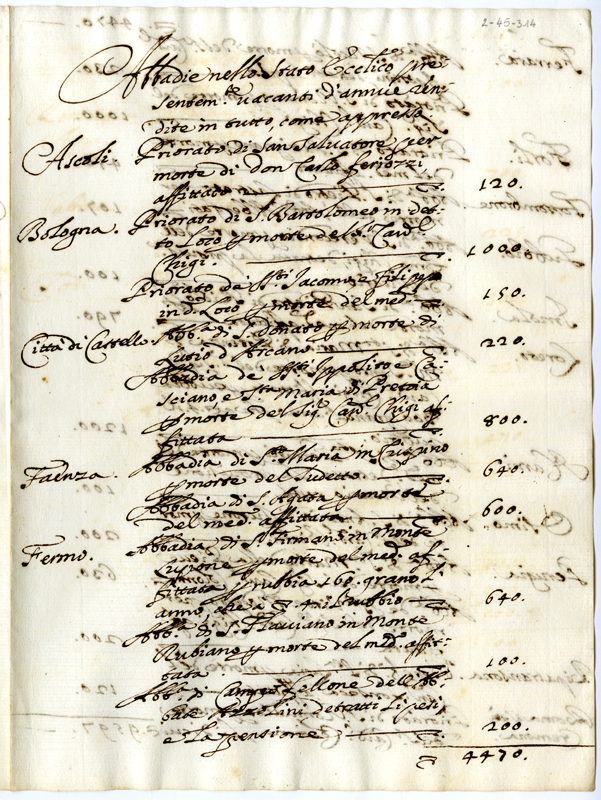 2-45-314
Abbadie nello Stato Eccl.ico pre-
sentem.te vacanti d'annue ren-
dite in tutto, come appresso
Ascoli. Priorato di San Salvatore per
morte di Don Carlo
affittato 120.
Bologna. Priorato di S. Bartolomeo in det-
to Loco p morte del S. Card.l
Chigi. 1000.
Priorato de' S.ti Jacomo, e Filippo
in d.o Loco p morte del med.o 150.
Città di Castello. Abb.a di S. Donato p morte di
Lutio d'Arcano 220.
Abbadia de' S.ti Ippolito e Ca-
sciano, e S.ta Maria di Pretoia
p morte del Sig. Card. Chigi af-
fittata 800.
Faenza. Abbadia di S.ta Maria in
p morte del Sudetto 640.
Abbadia di S. Agata p morte
del med.o affittata 600.
Fermo. Abbadia di S. Firmano in Monte
p morte del med.o af-
fittata p rubbia 160. grano l'
anno, che a 4. il rubbio 640.
Abb.a di S. Flaviano in Monte
Rubiano p morte del med.o affit-
tata 100.
Abb.a di dell'Ab-
bate Azzolini detratti li pesi,
e la pensione 200.
4470.